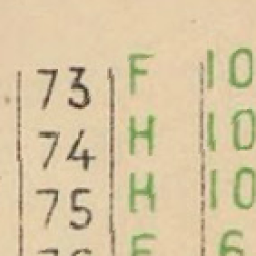 73 F 10
74 H 10
75 H 10
76 F 6